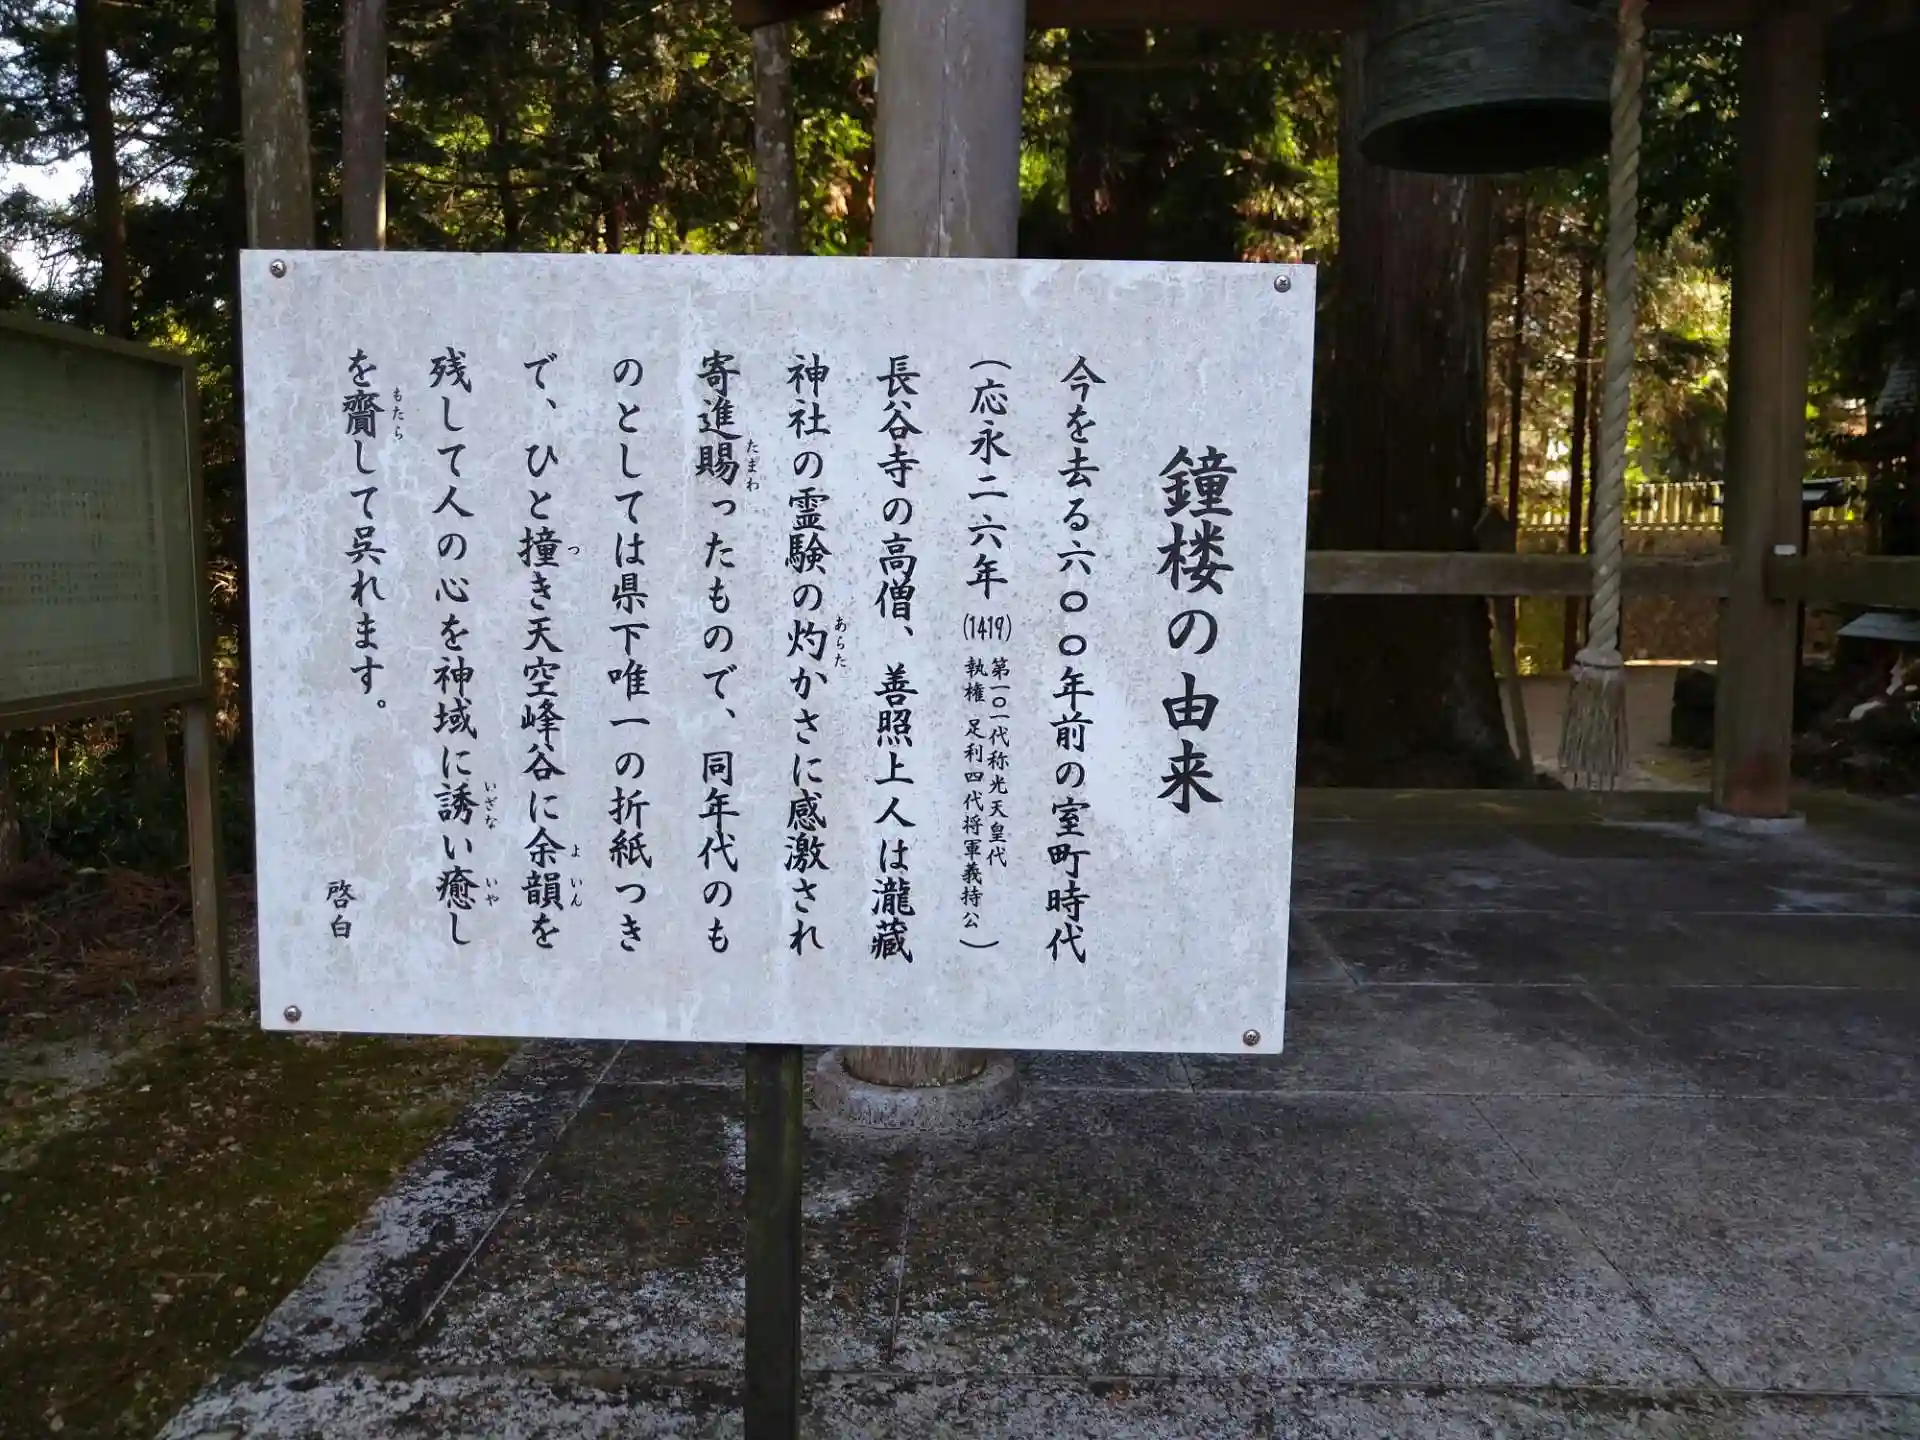 鐘楼の由来
今を去る六〇〇年前の室町時代
（応永二六年(1419)第一〇一代称光天皇代
執権 足利四代将軍義持公）
長谷寺の高僧、善照上人は瀧藏
神社の霊験の灼かさに感激され
あらた
寄進賜ったもので、同年代のも
たまわ
のとしては県下唯一の折紙つき
で、ひと撞き天空峰谷に余韻を
つ
よいん
残して人の心を神域に誘い癒し
いざな
いや
を齎して呉れます。
もたら
啓白